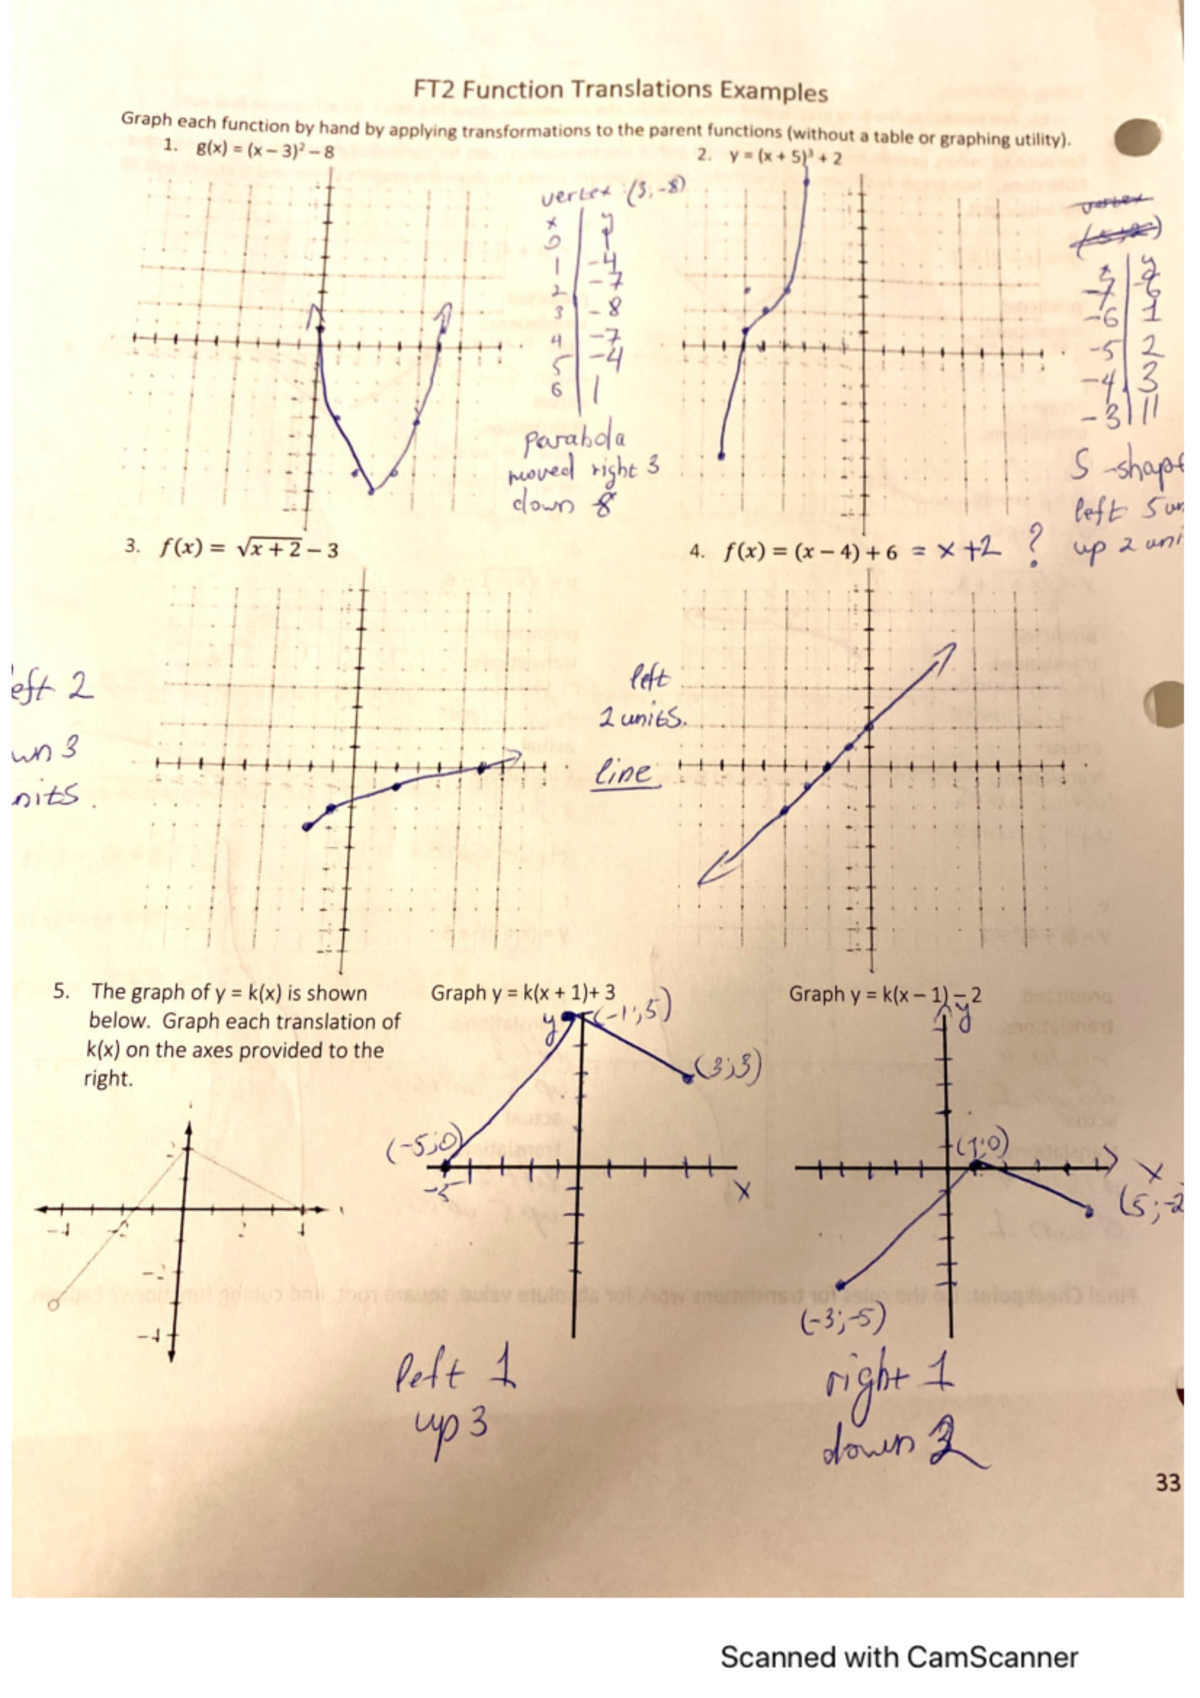 FT2 Function Translations Examples
Graph each function by hand by applying transformations to the parent functions (without a table or graphing utility).
1. g(x) = (x – 3)² – 8
vertex (3, -8)
x y
0 1
1 -4
2 -7
3 -8
4 -7
5 -4
6 1
parabola
moved right 3
down 8
2. y = (x + 5)³ + 2
vertex
x y
-7 -6
-6 1
-5 2
-4 3
-3 11
S-shape
left 5 un
up 2 uni
3. f(x) = √x + 2 – 3
eft 2
wn 3
nits.
4. f(x) = (x – 4) + 6 = x + 2 ?
left
2 units.
line
5. The graph of y = k(x) is shown
below. Graph each translation of
k(x) on the axes provided to the
right.
-4 -2 2 4
2
-2
-4
Graph y = k(x + 1)+ 3
y (-1;5)
(3;3)
(-5;0)
-5
x
left 1
up 3
Graph y = k(x – 1) – 2
y
(1;0)
x
(5;-2
(-3;-5)
right 1
down 2
33
Scanned with CamScanner